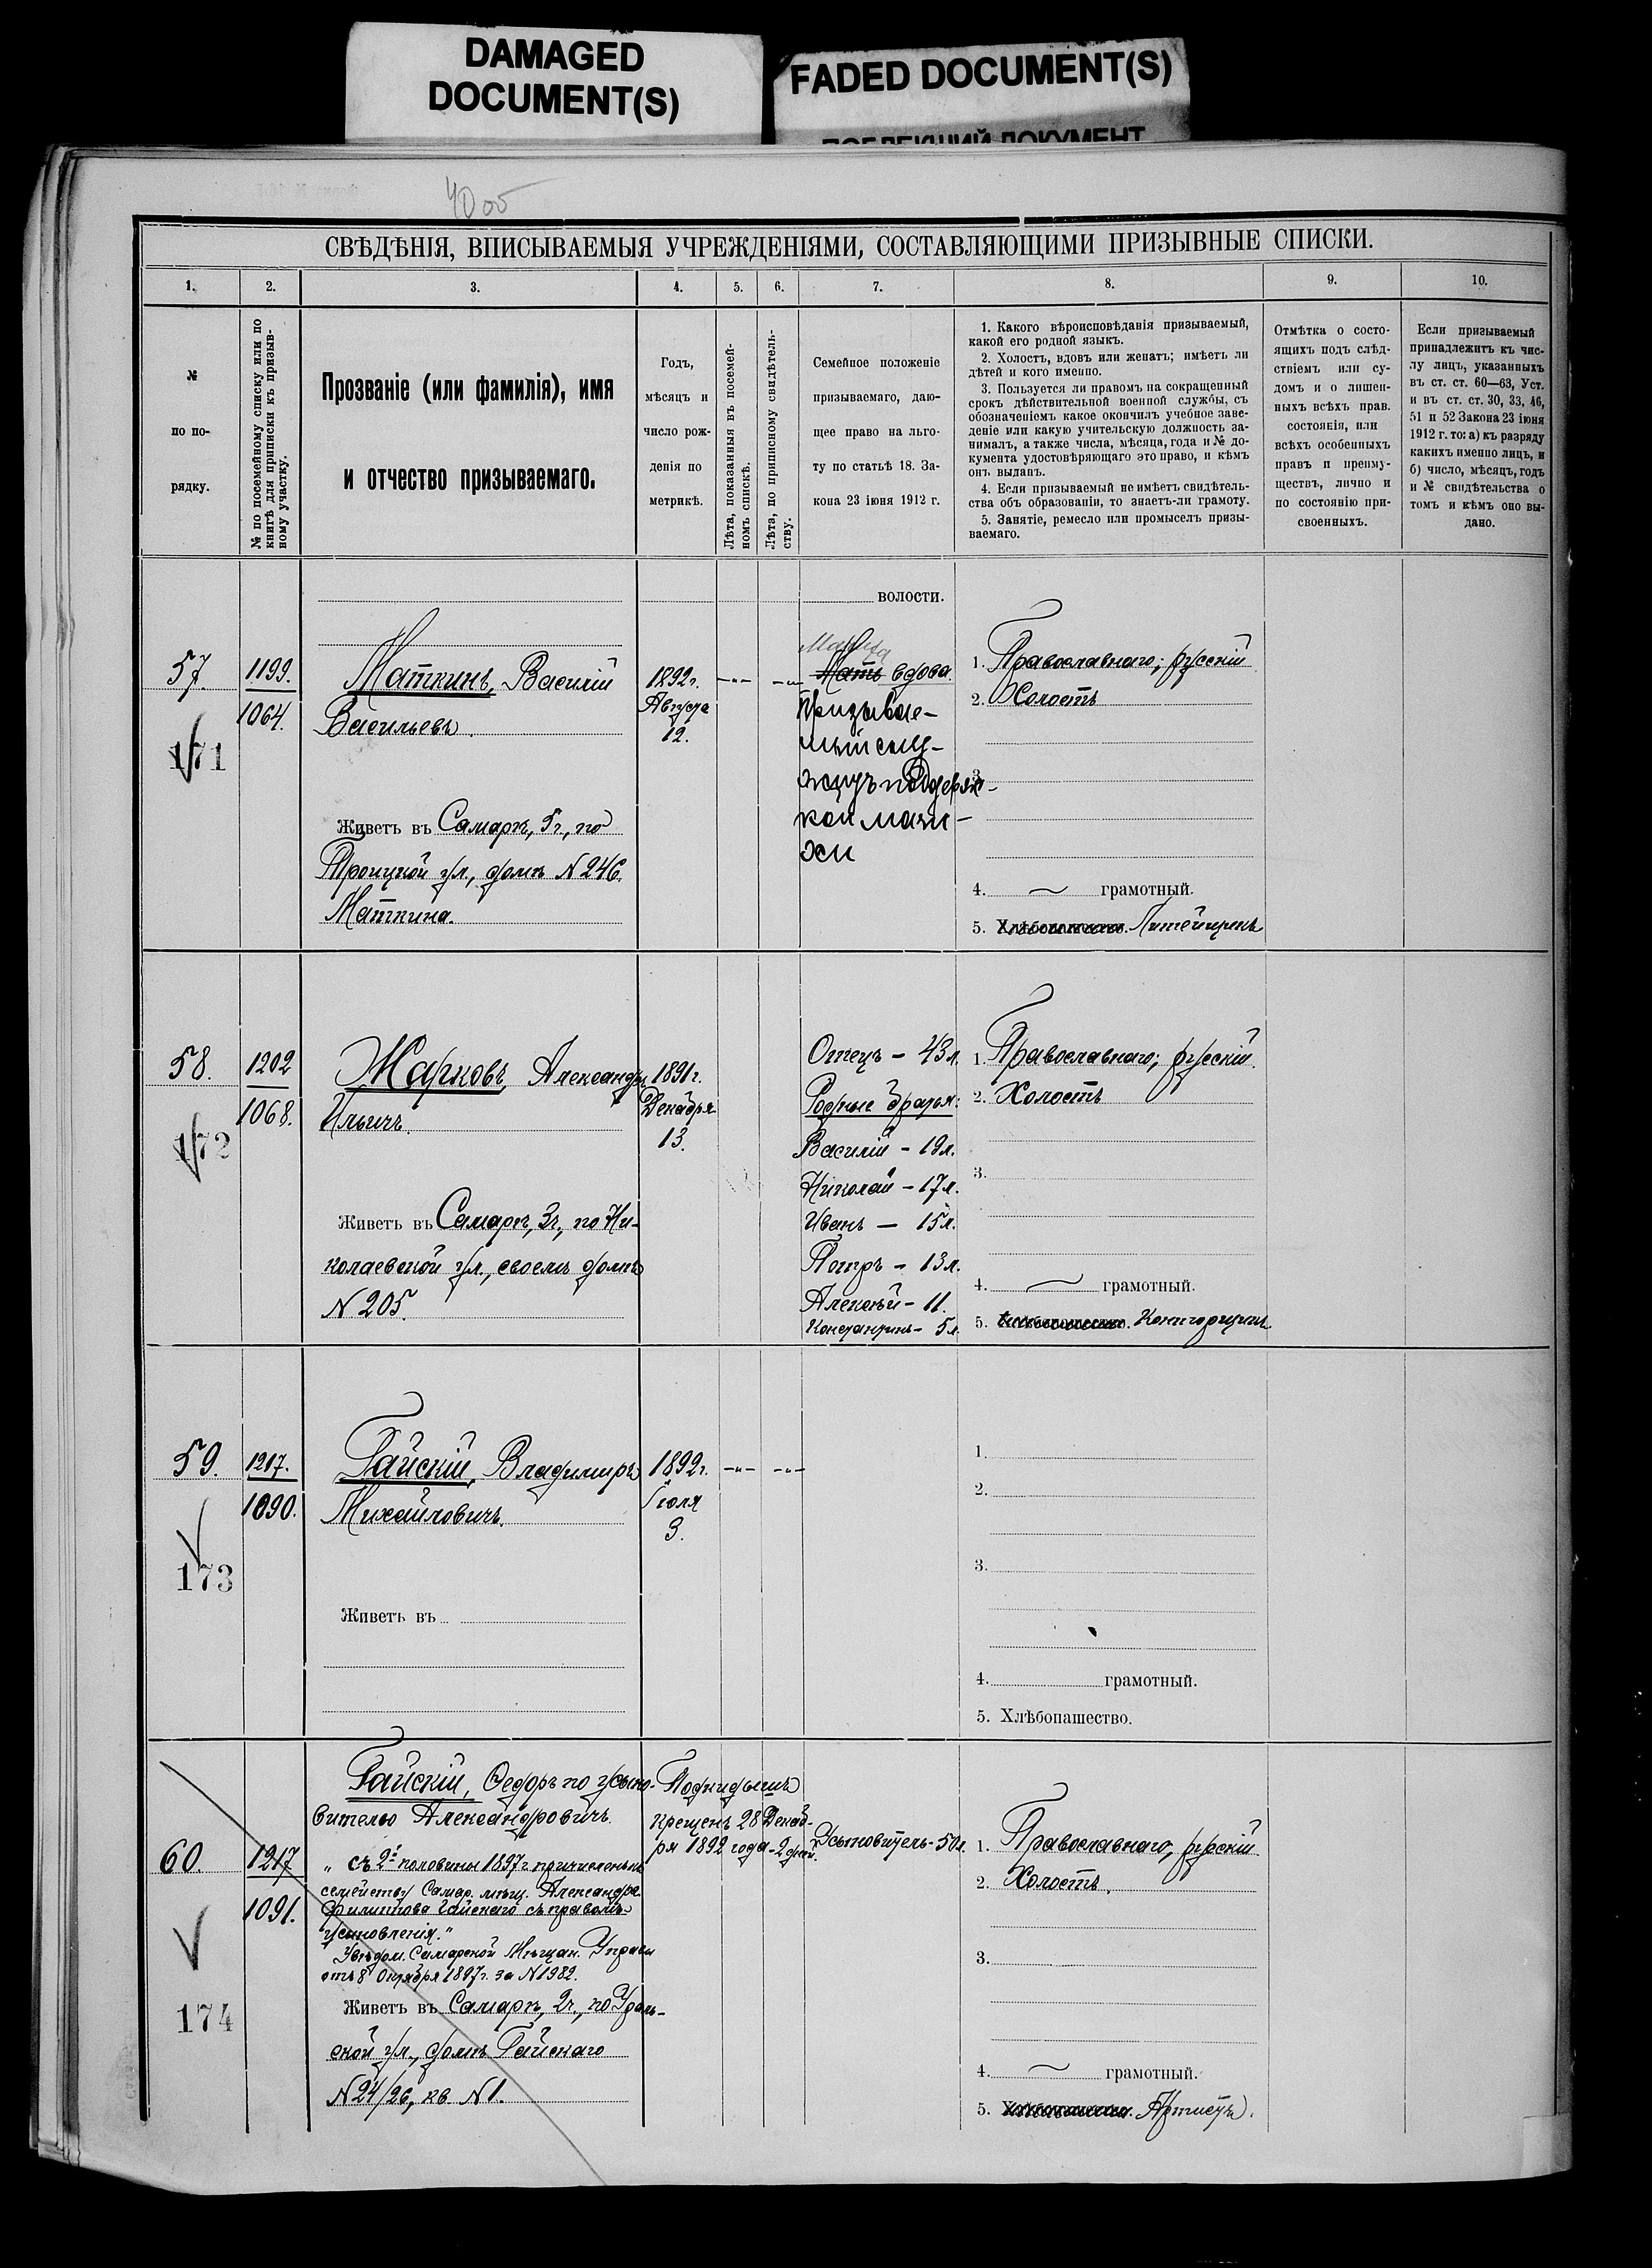 DAMAGED
DOCUMENT(S)
FADED DOCUMENT(S)
ПОБЛЕКШИЙ ДОКУМЕНТ
СВѢДѢНІЯ, ВПИСЫВАЕМЫЯ УЧРЕЖДЕНІЯМИ, СОСТАВЛЯЮЩИМИ ПРИЗЫВНЫЕ СПИСКИ.
1. 2. 3. 4. 5. 6. 7. 8. 9. 10.
№
по по-
рядку.
№ по посемейному списку или по
книгѣ для приписки къ призыв-
ному участку.
Прозваніе (или фамилія), имя
и отчество призываемаго.
Годъ,
мѣсяцъ и
число рож-
денія по
метрикѣ.
Лѣта, показанныя въ посемей-
номъ спискѣ.
Лѣта, по приписному свидѣтель-
ству.
Семейное положеніе
призываемаго, даю-
щее право на льго-
ту по статьѣ 18. За-
кона 23 іюня 1912 г.
1. Какого вѣроисповѣданія призываемый,
какой его родной языкъ.
2. Холостъ, вдовъ или женатъ; имѣетъ ли
дѣтей и кого именно.
3. Пользуется ли правомъ на сокращенный
срокъ дѣйствительной военной службы, съ
обозначеніемъ какое окончилъ учебное заве-
деніе или какую учительскую должность за-
нималъ, а также числа, мѣсяца, года и № до-
кумента удостовѣряющаго это право, и кѣмъ
онъ выданъ.
4. Если призываемый не имѣетъ свидѣтель-
ства объ образованіи, то знаетъ-ли грамоту.
5. Занятіе, ремесло или промыселъ призы-
ваемаго.
Отмѣтка о состо-
ящихъ подъ слѣд-
ствіемъ или су-
домъ и о лишен-
ныхъ всѣхъ прав.
состоянія, или
всѣхъ особенныхъ
правъ и преиму-
ществъ, лично и
по состоянію при-
своенныхъ.
Если призываемый
принадлежитъ къ чис-
лу лицъ, указанныхъ
въ ст. ст. 60—63, Уст.
и въ ст. ст. 30, 33, 46,
51 и 52 Закона 23 іюня
1912 г. то: а) къ разряду
какихъ именно лицъ, и
б) число, мѣсяцъ, годъ
и № свидѣтельства о
томъ и кѣмъ оно вы-
дано.
57.
171
1199.
1064.
Маткинъ, Василій
Васильевъ.
Живетъ въ Самарѣ, 5ч., по
Троицкой ул., домъ N 246.
Маткина.
1892г.
Августа
12.
волости.
Мачиха
Мать вдова.
Призывае-
мый слу-
житъ поддерж-
кой мачи-
хи
1. Православнаго; русскій
2. Холостъ
3.
4. грамотный.
5. Хлѣбопашество. Литейщикъ
58.
172
1202
1068.
Жарковъ, Александръ
Ильичъ.
Живетъ въ Самарѣ, 3ч., по Ни-
колаевской ул., своемъ домѣ
N 205.
1891г.
Декабря
13.
Отецъ - 43 л.
Родные братья:
Василій - 19 л.
Николай - 17 л.
Иванъ — 15 л.
Петръ - 13 л.
Алексѣй - 11.
Константинъ - 5 л.
1. Православнаго; русскій.
2. Холостъ
3.
4. грамотный.
5. Хлѣбопашество.
59.
173
1217.
1090.
Гайскій, Владимиръ
Михайловичъ.
Живетъ въ
1892г.
Іюля
3.
1.
2.
3.
4. грамотный.
5. Хлѣбопашество.
60.
174
1217
1091.
Гайскій, Ѳедоръ по усыно-
вителю Александровичъ.
„ съ 2й половины 1897г. причисленъ къ
семейству Самар. мѣщ. Александра
Филиппова Гайскаго съ правомъ
усыновленія."
Увѣдом. Самарской Мѣщан. Управы
отъ 8 Октября 1897г. за N 1982.
Живетъ въ Самарѣ, 2ч., по Ураль-
ской ул., домъ Гайскаго
N 24/26, кв. N 1.
Подкидышъ
крещенъ 28 Декаб-
ря 1892 года - 2 дней.
Усыновитель - 50 л.
1. Православнаго, русскій.
2. Холостъ.
3.
4. грамотный.
5. Хлѣбопашество. Артистъ.